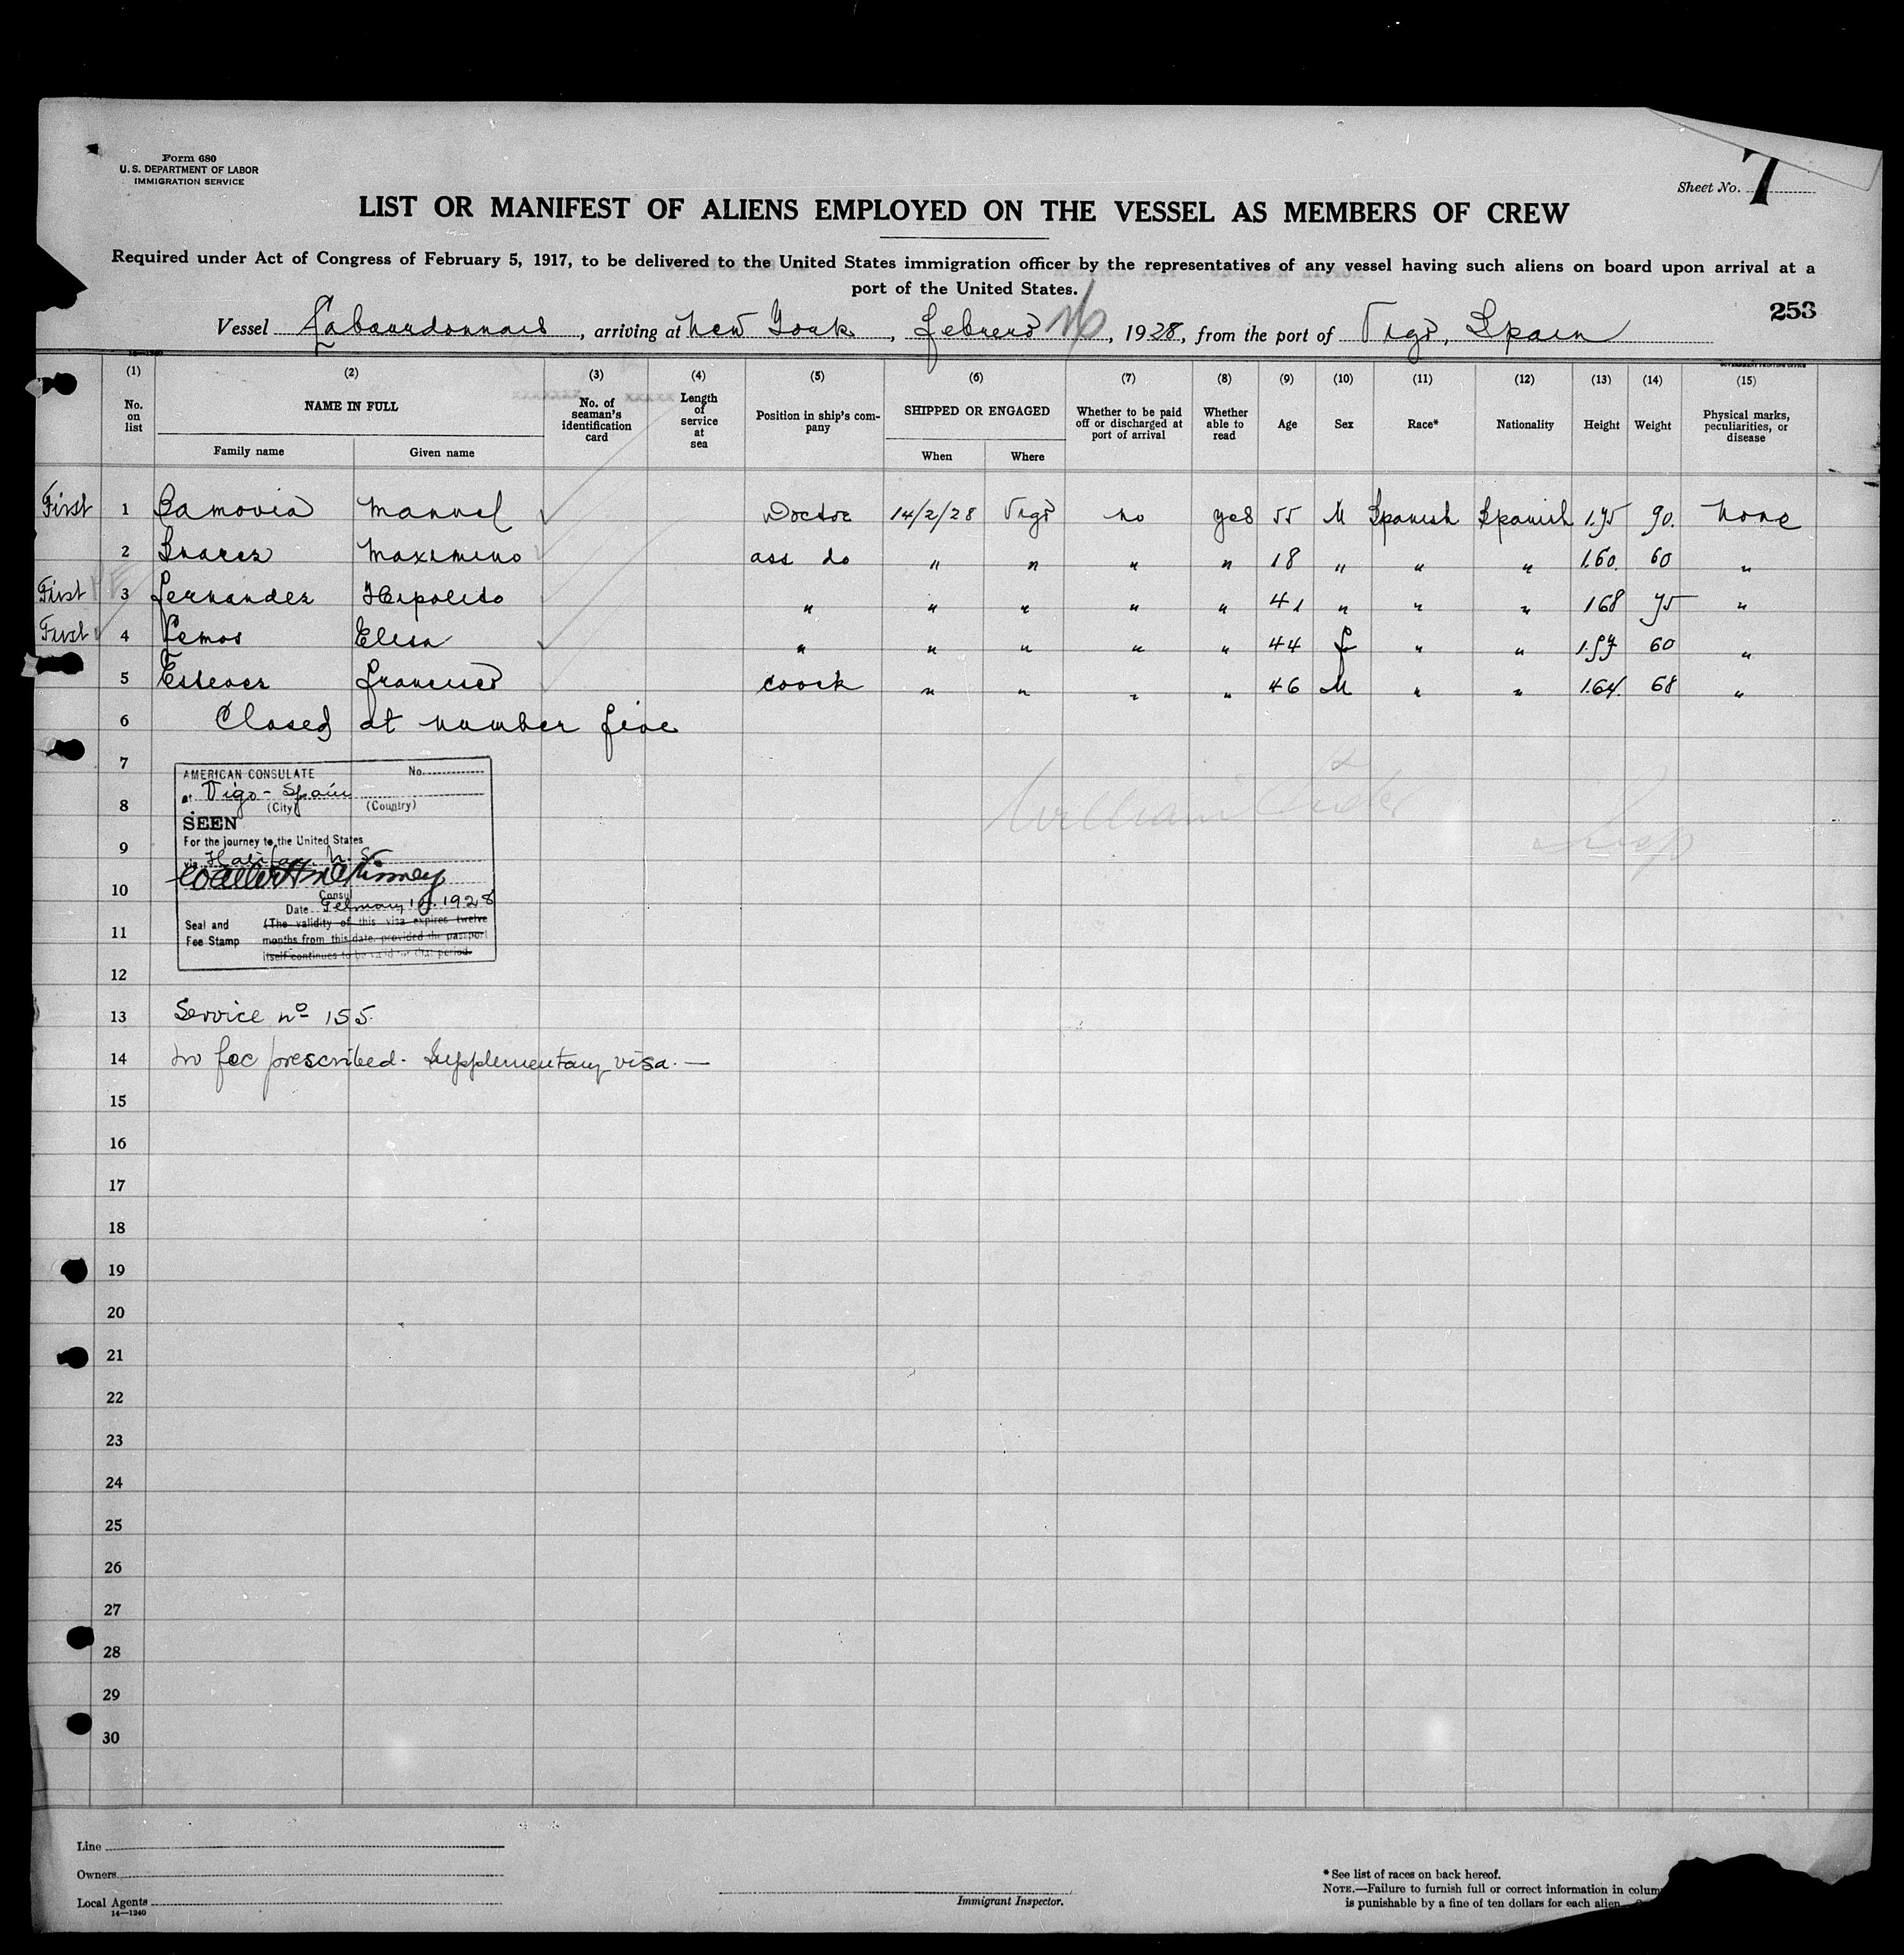 Form 680
U. S. DEPARTMENT OF LABOR
IMMIGRATION SERVICE
Sheet No. 7
LIST OR MANIFEST OF ALIENS EMPLOYED ON THE VESSEL AS MEMBERS OF CREW
Required under Act of Congress of February 5, 1917, to be delivered to the United States immigration officer by the representatives of any vessel having such aliens on board upon arrival at a
port of the United States.
253
Vessel Labourdonnais, arriving at New York, febrero, 1928, from the port of Vigo, Spain
(1) (2) (3) (4) (5) (6) (7) (8) (9) (10) (11) (12) (13) (14) (15)
No. on list NAME IN FULL Family name Given name No. of seaman's identification card Length of service at sea Position in ship's company SHIPPED OR ENGAGED When Where Whether to be paid off or discharged at port of arrival Whether able to read Age Sex Race* Nationality Height Weight Physical marks, peculiarities, or disease
First 1 Manuel Doctor 14/2/28 Vigo no yes 55 M Spanish Spanish 1.75 90. none
2 Suarez Maximino ass do " " " " 18 " " " 1.60 60 "
First 3 fernandez Hipolito " " " " " 41 " " " 168 75 "
First 4 Lemos Elisa " " " " " 44 f " " 1.57 60 "
5 Estevez francisco coock " " " " 46 M " " 1.64. 68 "
6 Closed at number five
7
8
9
10
11
12
AMERICAN CONSULATE No.
at Vigo - Spain
(City) (Country)
SEEN
For the journey to the United States
via Halifax N. S.
Consul
Date February 1928
Seal and Fee Stamp (The validity of this visa expires twelve
months from this date, provided the passport
itself continues to be valid for that period.
13 Service nº 155.
14 no fee prescribed. Supplementary visa. —
15
16
17
18
19
20
21
22
23
24
25
26
27
28
29
30
Line
Owners
Local Agents
14—1240
Immigrant Inspector.
* See list of races on back hereof.
NOTE.—Failure to furnish full or correct information in
is punishable by a fine of ten dollars for each alien.